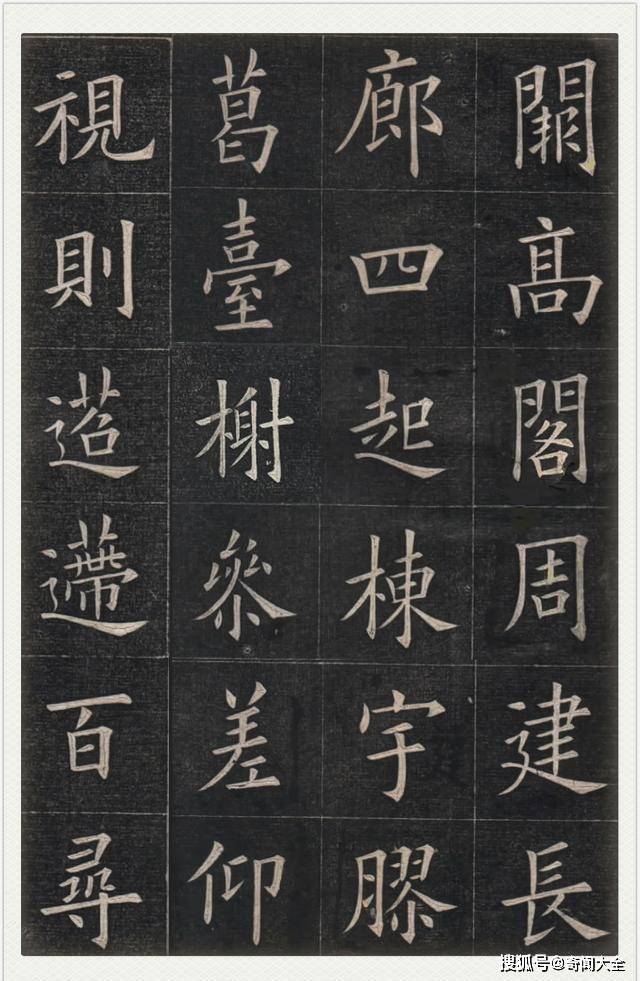 闕高閣周建長
廊四起棟宇膠
葛臺榭叅差仰
視則迢遰百尋
搜狐号@奇闻大全